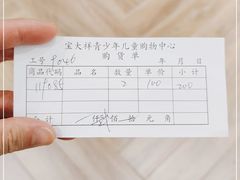 宝大祥青少年儿童购物中心
购货单
工号 9046 年 月 日
商品代码 品名 数量 单价 小计
119085 2 100 200
合计 仟 贰 佰 拾 元 角